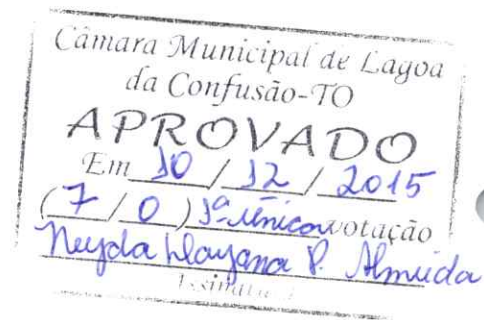 Câmara Municipal de Lagoa
da Confusão-TO
APROVADO
Em 10 / 12 / 2015
(7 / 0) 1ª única votação
P. Almeida
Assinatura